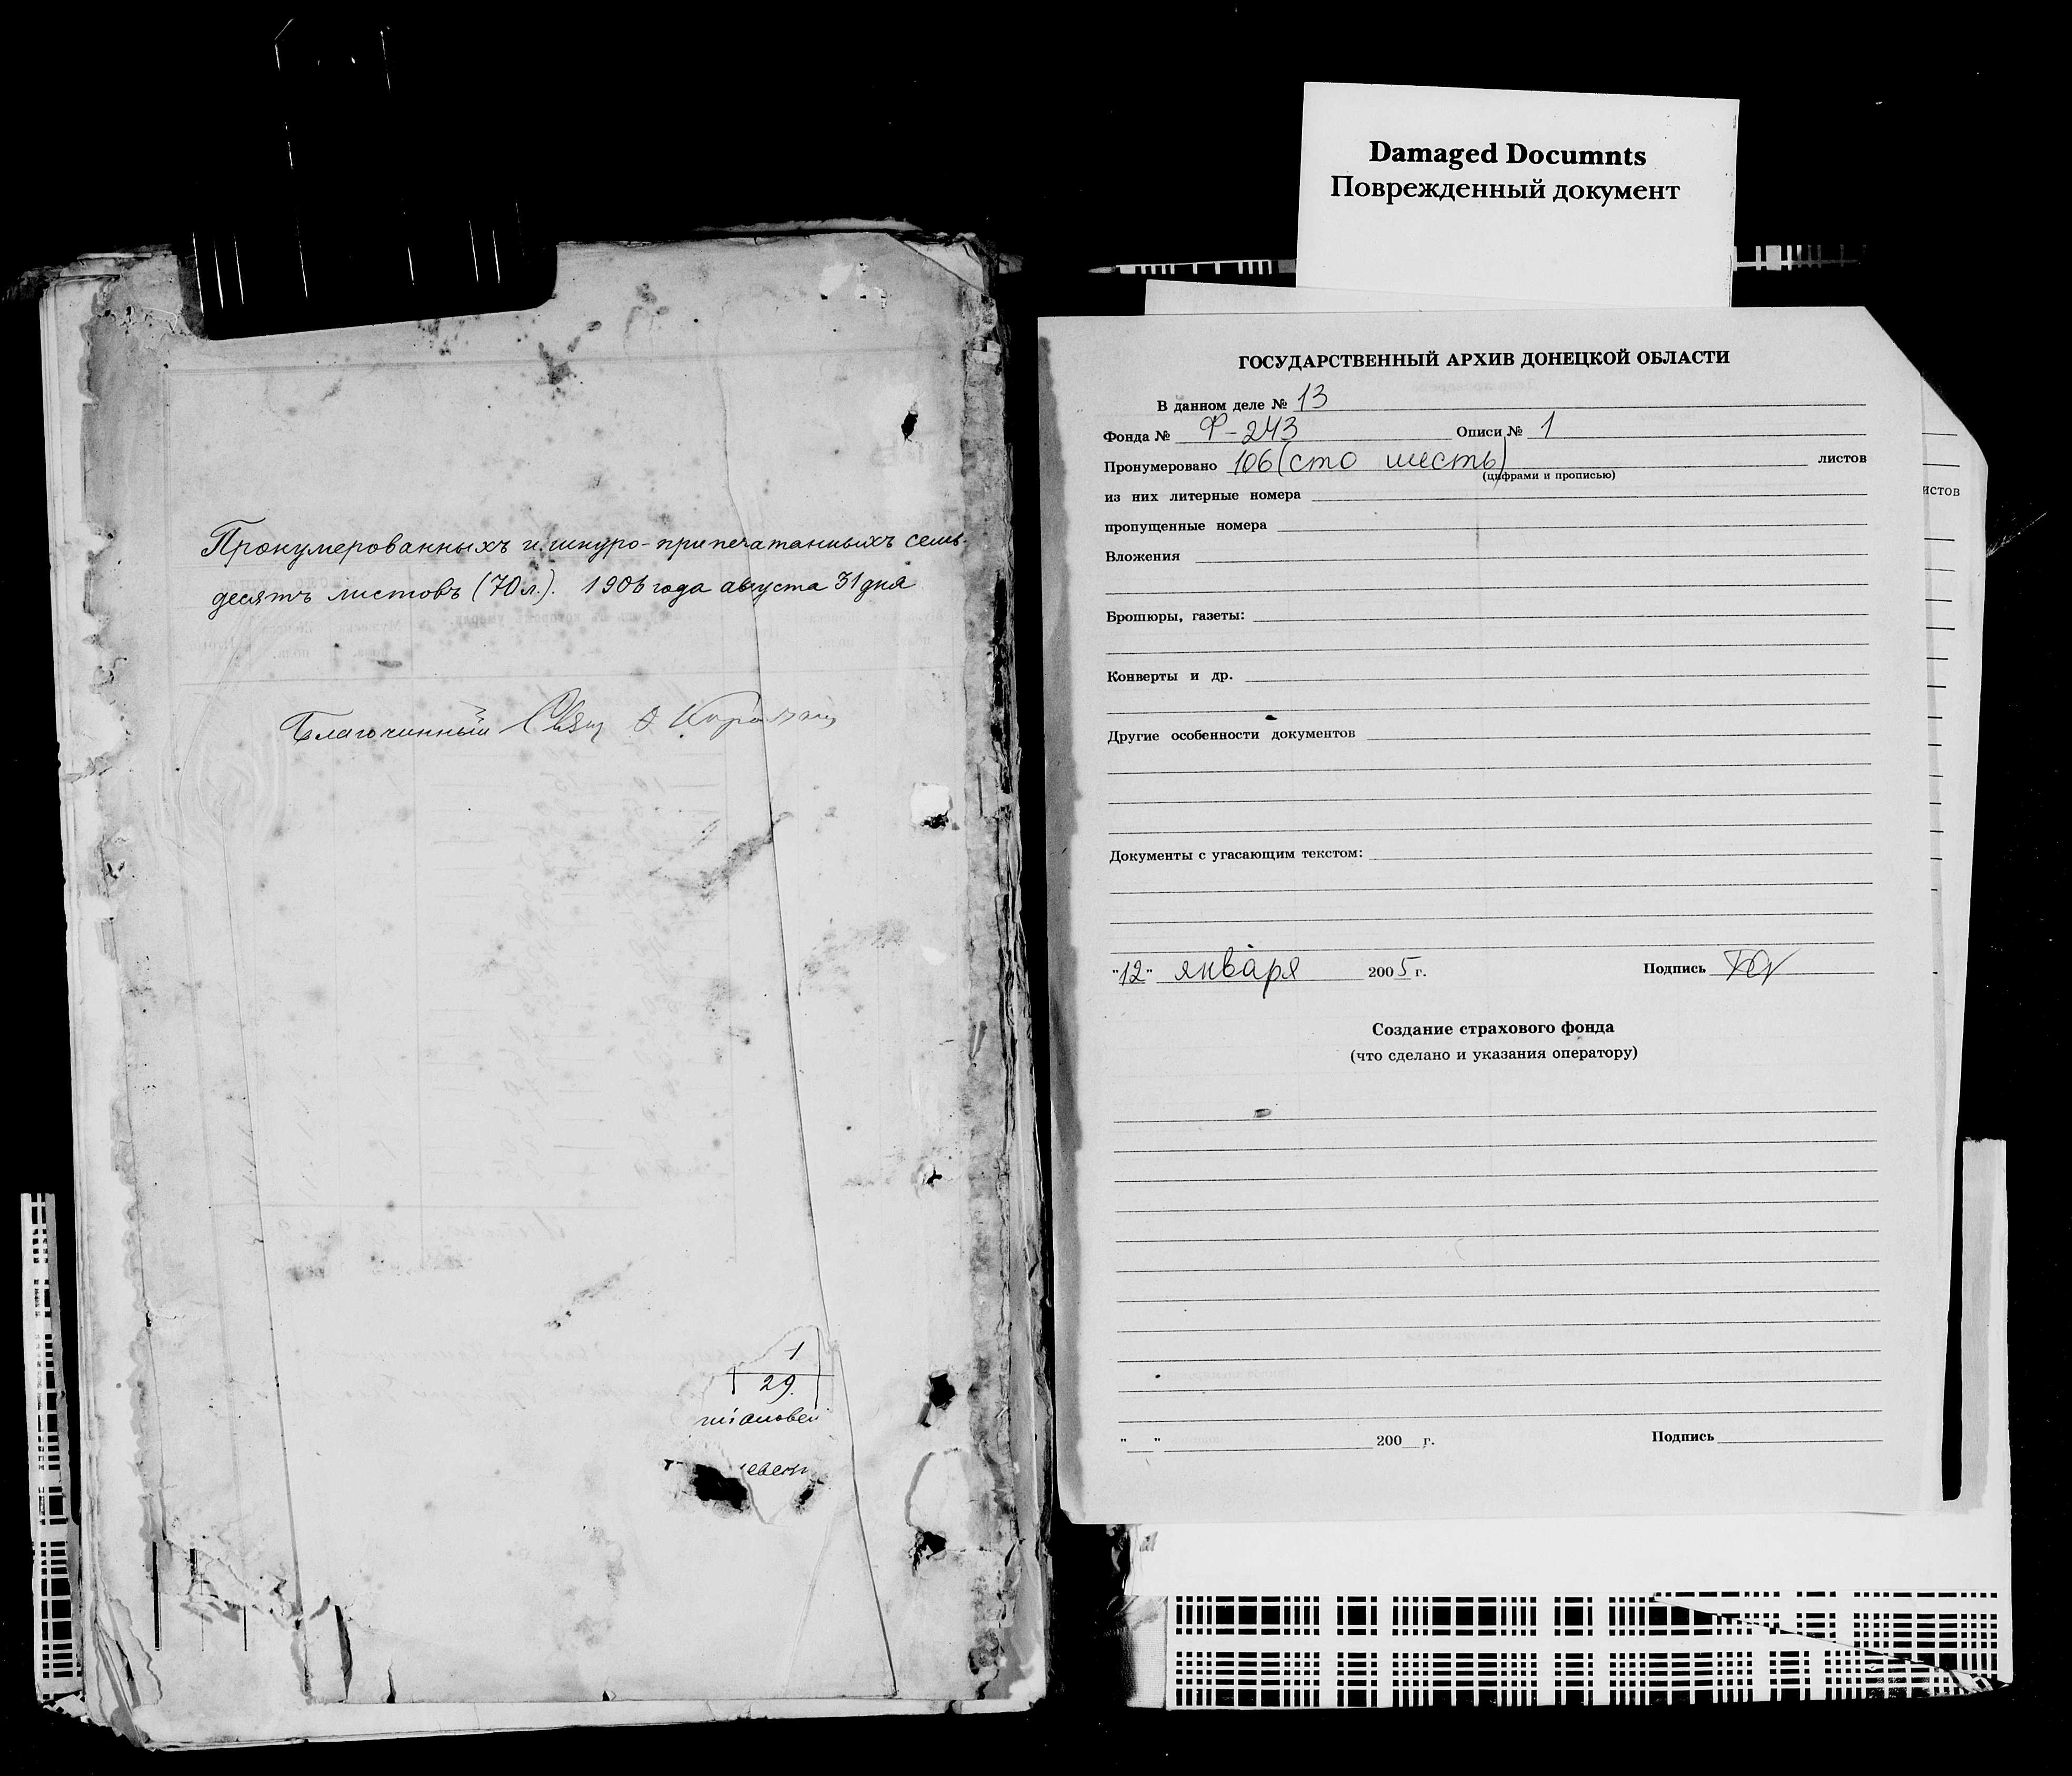 Damaged Documnts
Поврежденный документ
Пронумерованныхъ и шнуро-припечатанныхъ семь-
десятъ листовъ (70 л.). 1906 года августа 31 дня
Благочинный Свящ
1
29.
ГОСУДАРСТВЕННЫЙ АРХИВ ДОНЕЦКОЙ ОБЛАСТИ
В данном деле № 13
Фонда № Ф-243 Описи № 1
Пронумеровано 106 (сто шесть) листов
(цифрами и прописью)
из них литерные номера
пропущенные номера
Вложения
Брошюры, газеты:
Конверты и др.
Другие особенности документов
Документы с угасающим текстом:
"12" января 2005 г. Подпись
Создание страхового фонда
(что сделано и указания оператору)
" " 200 г. Подпись
истов